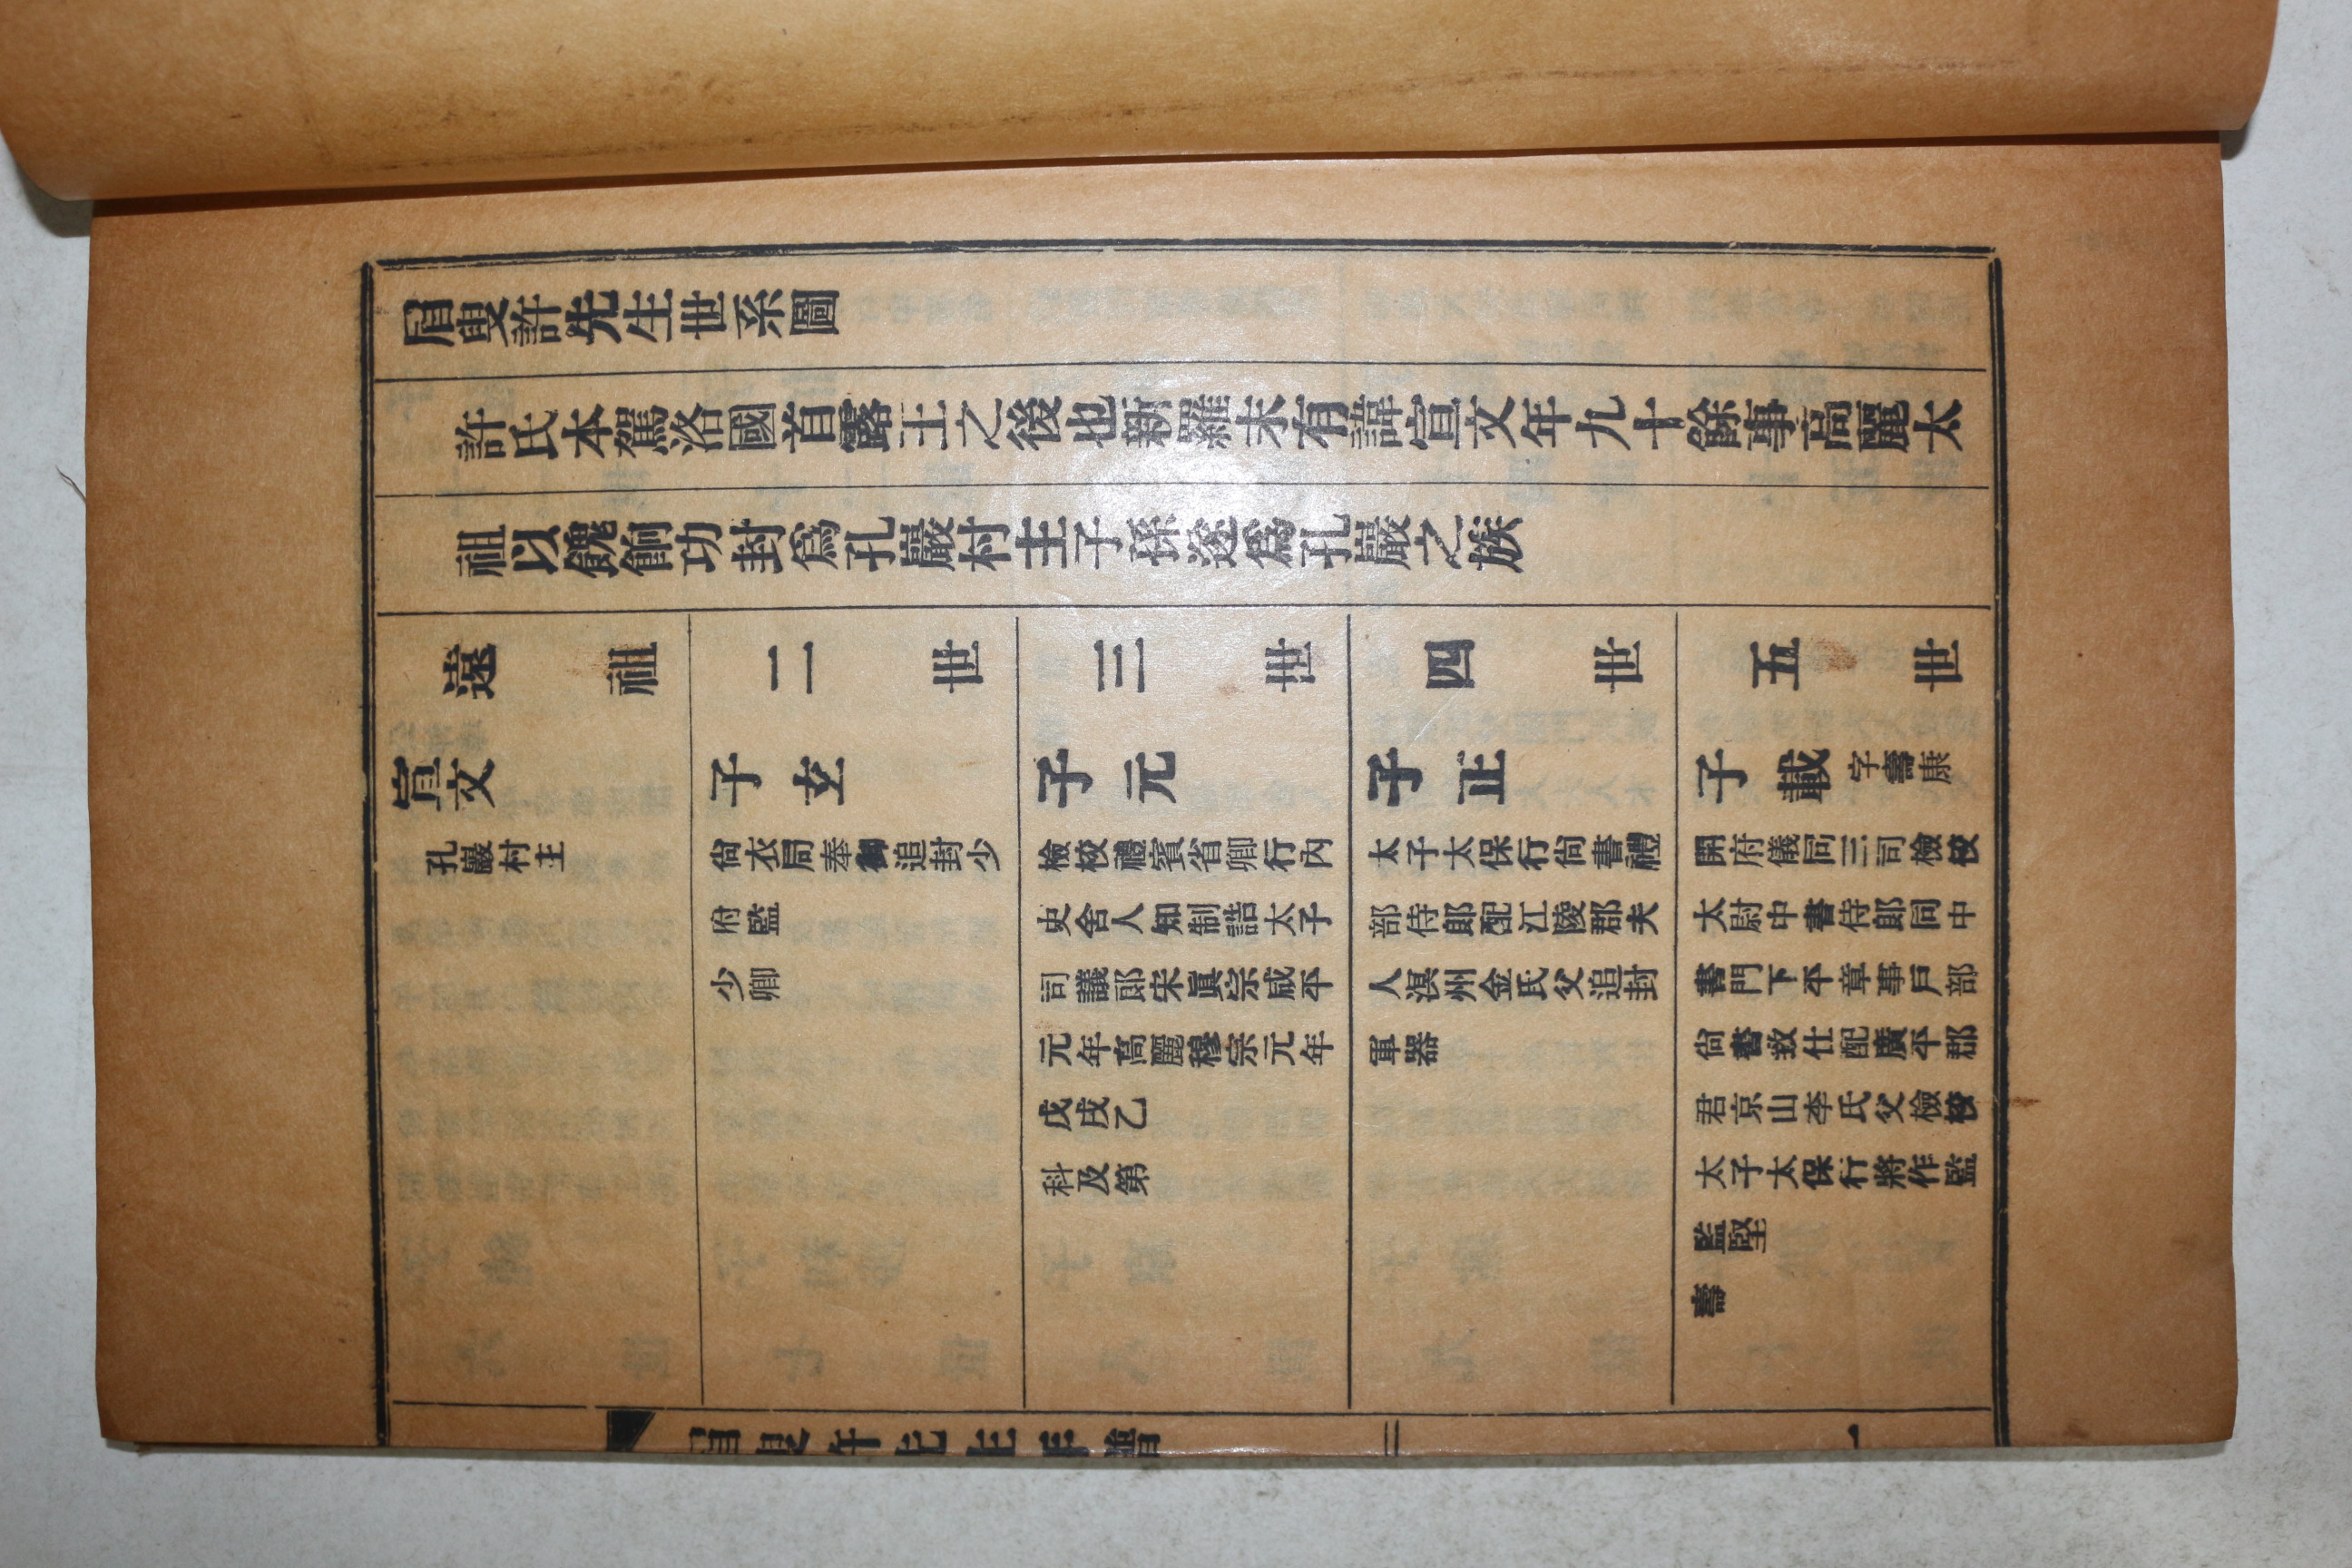 眉叟許先生世系圖
許氏本駕洛國首露王之後也新羅末有諱宣文年九十餘事高麗太
祖以餽餉功封爲孔巖村主子孫遂爲孔巖之族
遠祖
宣文
孔巖村主
二世
子玄
尙衣局奉御追封少
府監
少卿
三世
子元
檢校禮賓省卿行內
史舍人知制誥太子
司議郞宋眞宗咸平
元年高麗穆宗元年
戊戌乙
科及第
四世
子正
太子太保行尙書禮
部侍郞配江陵郡夫
人溟州金氏父追封
軍器
五世
子載 字壽康
開府儀同三司檢校
太尉中書侍郞同中
書門下平章事戶部
尙書致仕配廣平郡
君京山李氏父檢校
太子太保行將作監
監堅
壽
眉叟許先生年譜 一